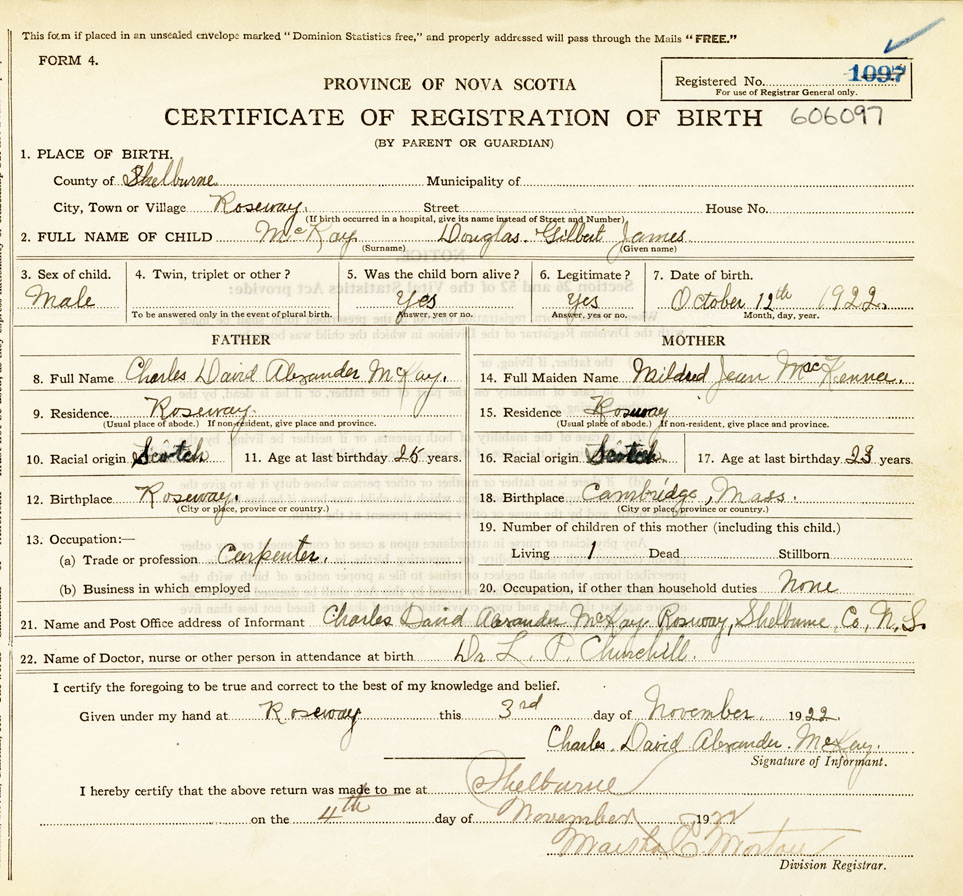 This form if placed in an unsealed envelope marked "Dominion Statistics free," and properly addressed will pass through the Mails "FREE."
FORM 4.
Registered No. 1097
For use of Registrar General only.
PROVINCE OF NOVA SCOTIA
CERTIFICATE OF REGISTRATION OF BIRTH 606097
(BY PARENT OR GUARDIAN)
1. PLACE OF BIRTH.
County of Shelburne Municipality of
City, Town or Village Roseway Street House No.
(If birth occurred in a hospital, give its name instead of Street and Number)
2. FULL NAME OF CHILD McKay Douglas Gilbert James
(Surname) (Given name)
3. Sex of child. 4. Twin, triplet or other? 5. Was the child born alive? 6. Legitimate? 7. Date of birth.
Male Yes Yes October 12th 1922.
To be answered only in the event of plural birth. Answer, yes or no. Answer, yes or no. Month, day, year.
FATHER
8. Full Name Charles David Alexander McKay.
9. Residence. Roseway.
(Usual place of abode.) If non-resident, give place and province.
10. Racial origin Scotch 11. Age at last birthday 25 years.
12. Birthplace Roseway.
(City or place, province or country.)
13. Occupation:—
(a) Trade or profession Carpenter.
(b) Business in which employed
MOTHER
14. Full Maiden Name Mildred Jean MacKenna.
15. Residence Roseway
(Usual place of abode.) If non-resident, give place and province.
16. Racial origin Scotch. 17. Age at last birthday 23 years.
18. Birthplace Cambridge, Mass.
(City or place, province or country.)
19. Number of children of this mother (including this child.)
Living 1 Dead Stillborn
20. Occupation, if other than household duties None
21. Name and Post Office address of Informant Charles David Alexander McKay Roseway, Shelburne Co, N.S.
22. Name of Doctor, nurse or other person in attendance at birth Dr L. P. Churchill.
I certify the foregoing to be true and correct to the best of my knowledge and belief.
Given under my hand at Roseway this 3rd day of November 1922.
Charles David Alexander McKay.
Signature of Informant.
I hereby certify that the above return was made to me at Shelburne
on the 4th day of November 1922
Division Registrar.